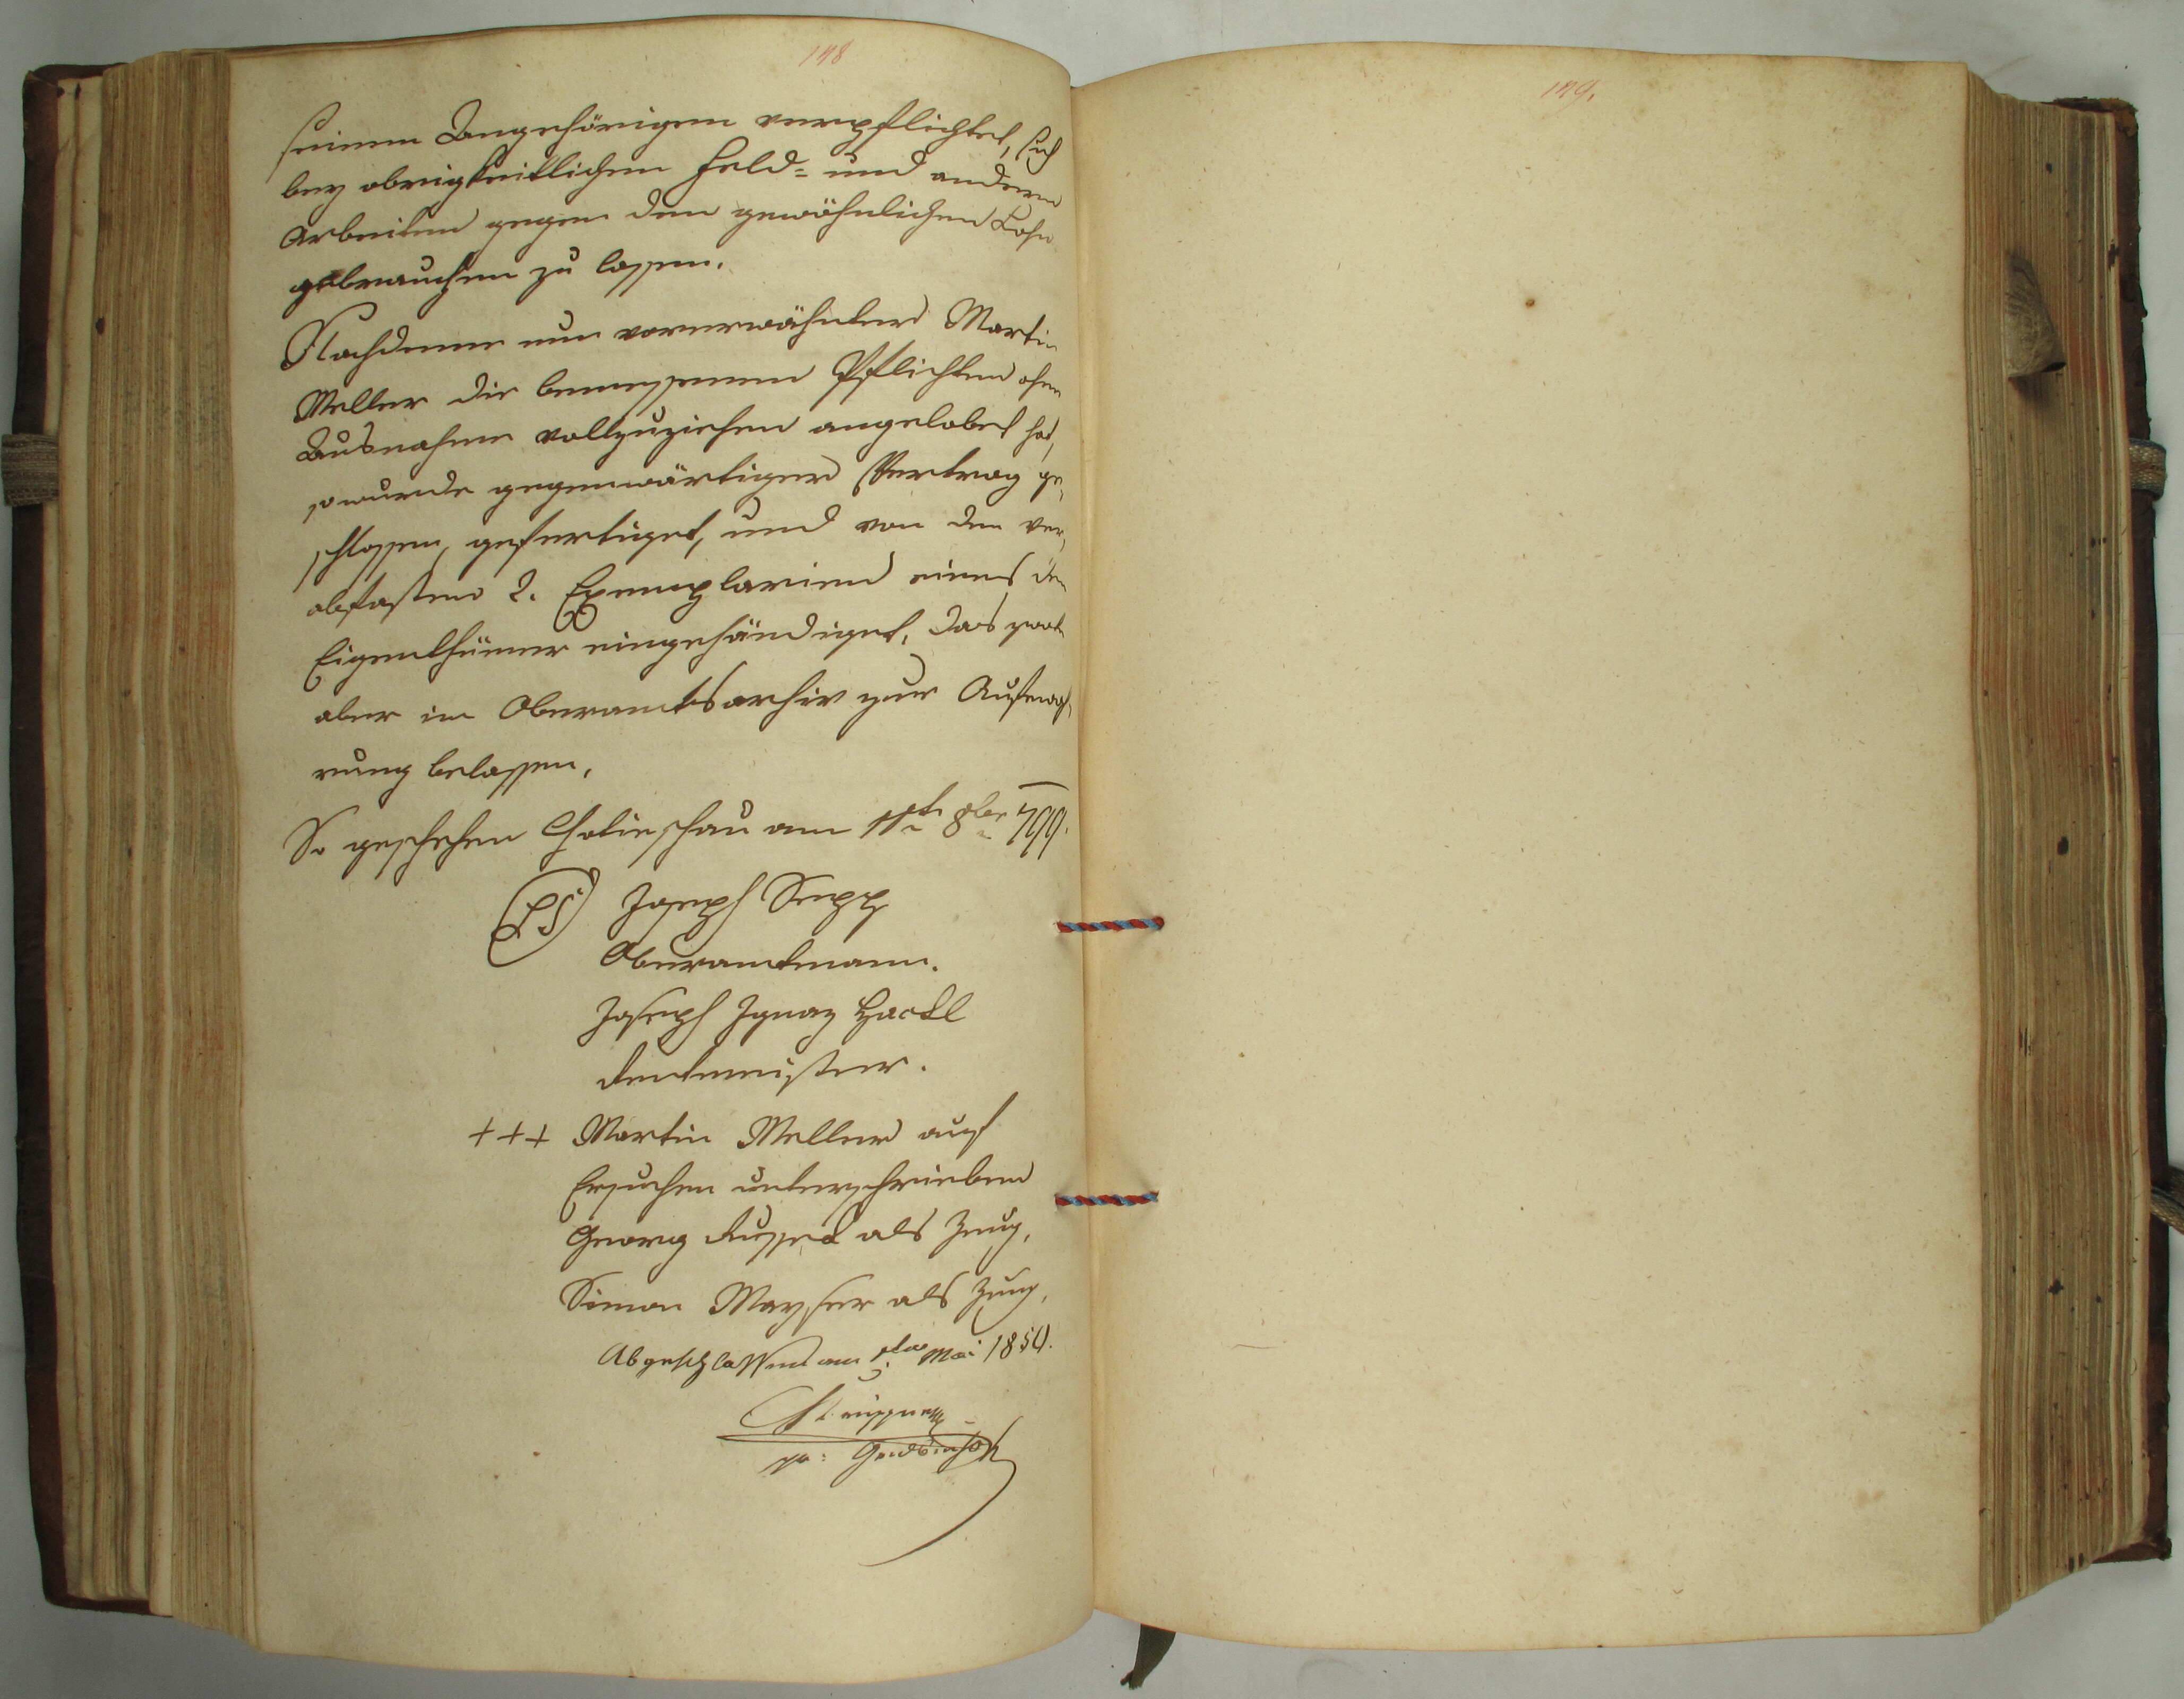 148
seinen Angehörigen verpflichtet, sich
bey obrigkeitlichen Feld= und andern
Arbeiten gegen den gewöhnlichen Lohn
gebrauchen zu lassen.
Nachdeme nun vorerwähnter Martin
Weller die bemessenen Pflichten ohne
Ausnahme vollzuziehen angelobet hat,
so wurde gegenwärtiger Vertrag ge,
schlossen, gefertiget, und von den ver,
abfasten 2. Exemplarien eines dem
Eigenthümer eingehändiget, das zweite
aber im Oberamtsarchiv zur Aufbewah,
rung belassen.
So geschehen Chotieschau am 11te 8ber 799.
(LS) Joseph Sepp
Oberamtmann.
Joseph Ignaz Hackl
Rentmeister.
+++ Martin Weller auf
Ersuchen unterschrieben
Georg als Zeug.
Simon Mayser als Zeug.
Abgeschlossen am Mai 1850.
149.